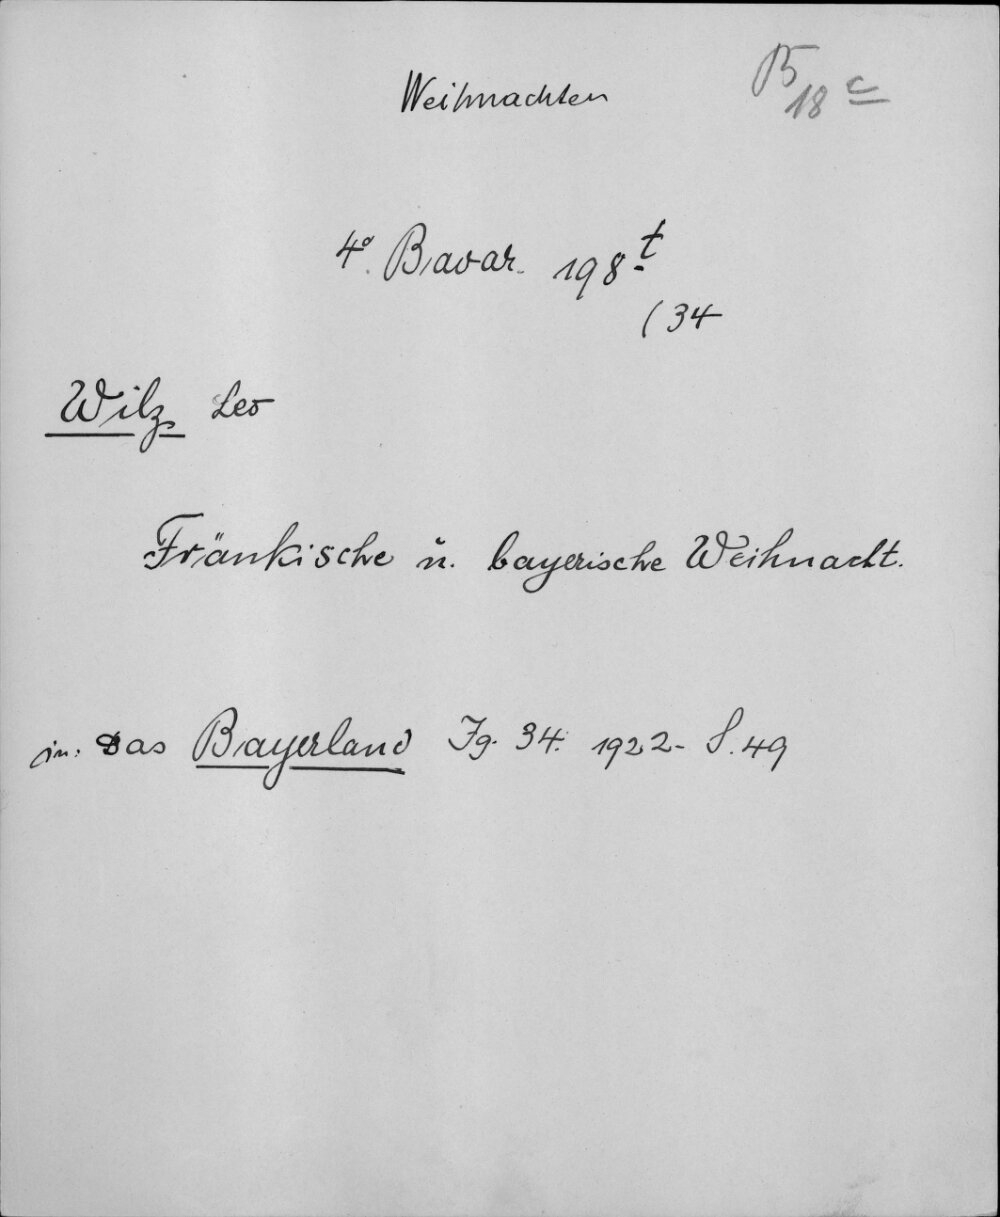 Weihnachten
B 18 c
4° Bavar. 198 t
(34
Wilz Leo
Fränkische u. bayerische Weihnacht.
in: Das Bayerland Jg. 34. 1922- S. 49